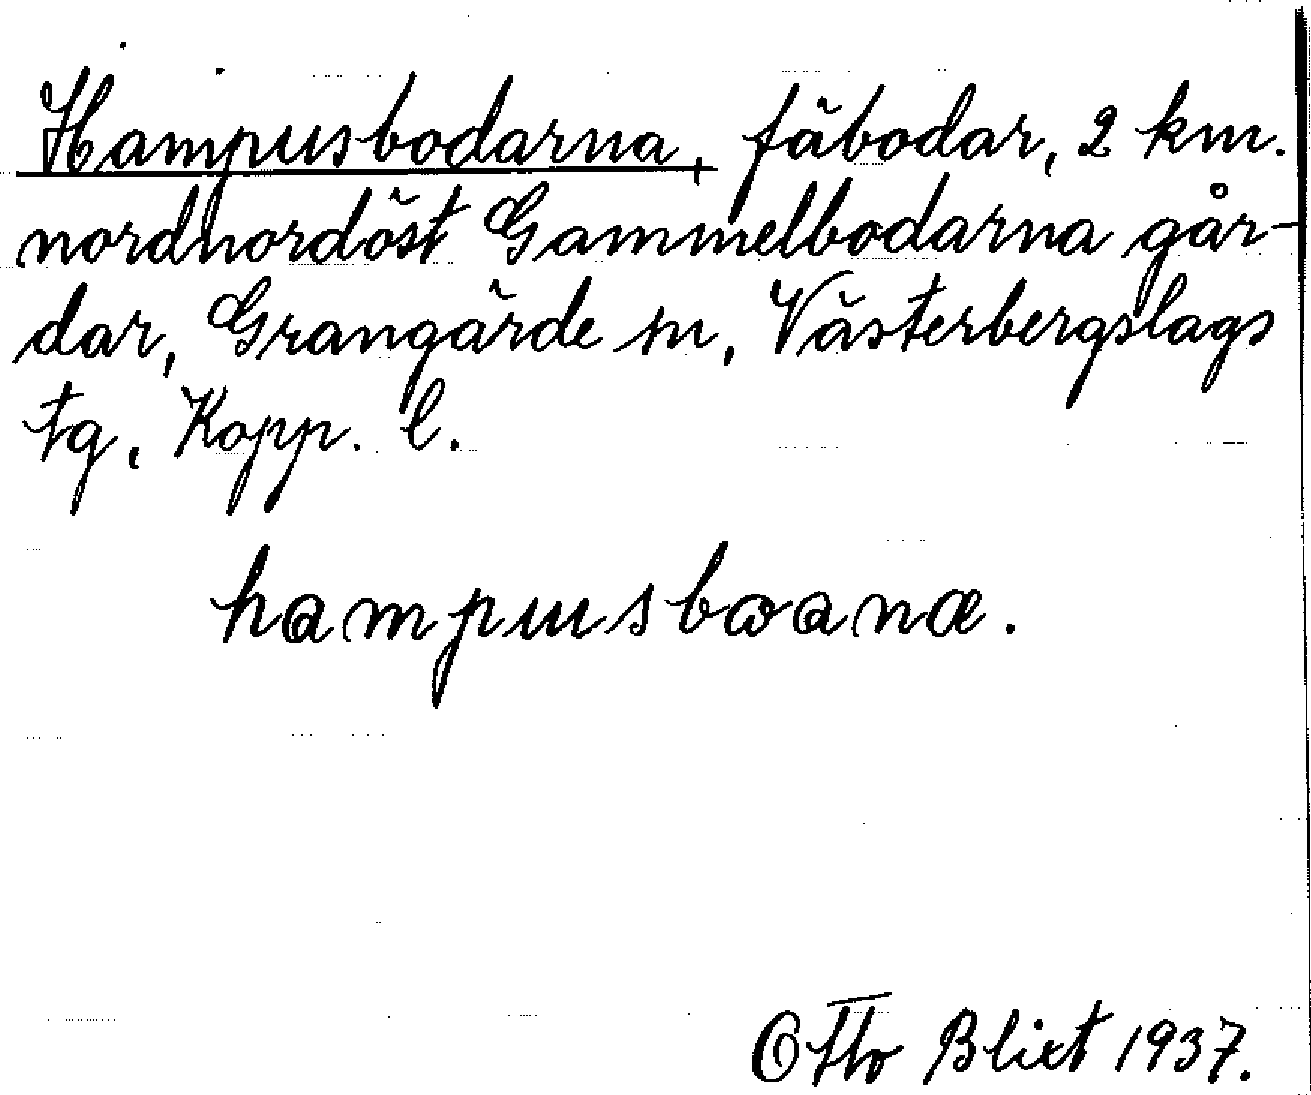 Hampusbodarna, fäbodar, 2 km.
nordnordöst Gammelbodarna går-
dar, Grangärde sn, Västerbergslags
tg, Kopp. l.
hampusbωanα.
Otto Blixt 1937.